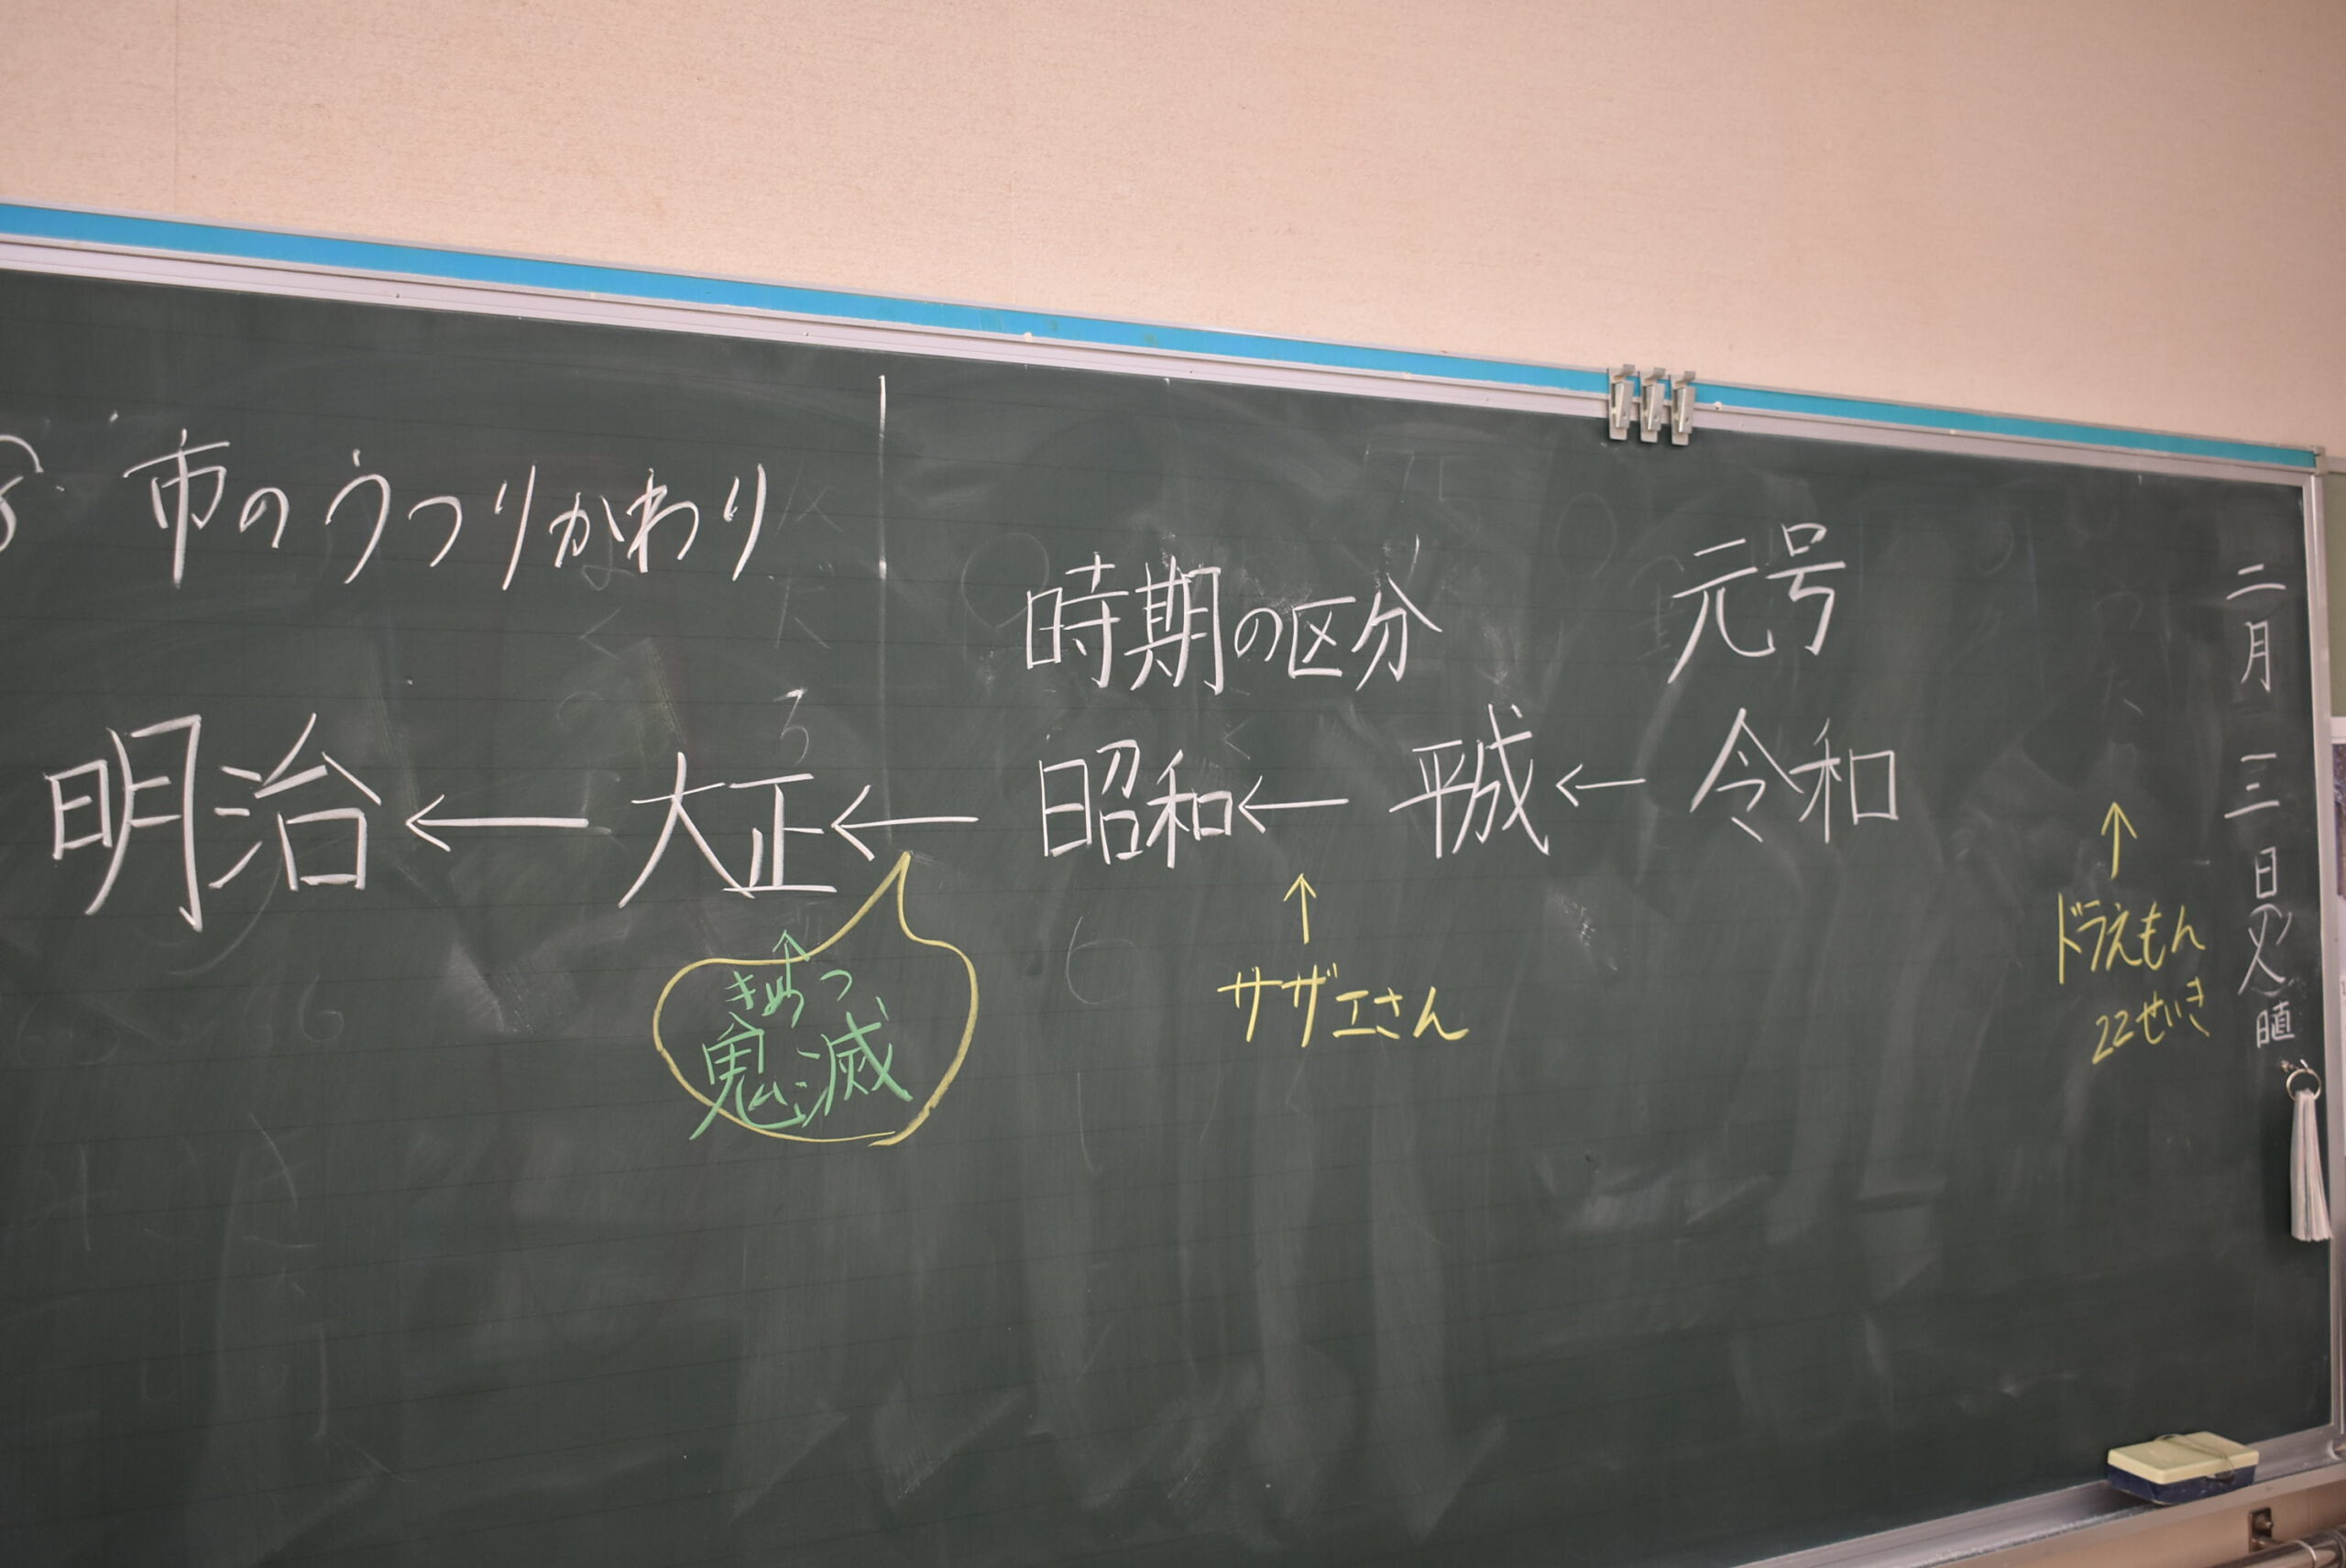 市のうつりかわり
時期の区分
元号
明治←大正←昭和←平成←令和
きめつ
鬼滅
↑
サザエさん
↑
ドラえもん
22せいき
二月二三日(火)